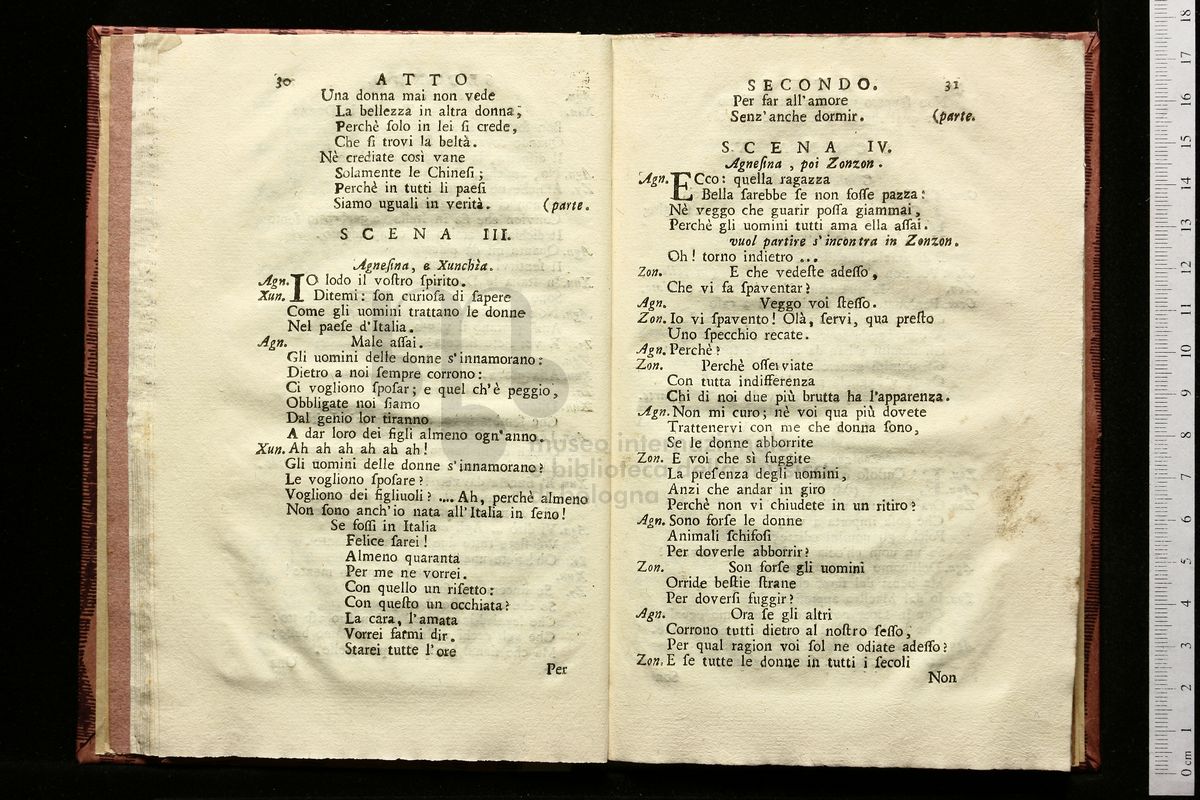 30 ATTO
Una donna mai non vede
La bellezza in altra donna;
Perchè ſolo in lei ſi crede,
Che ſi trovi la beltà.
Nè crediate così vane
Solamente le Chineſi;
Perchè in tutti li paeſi
Siamo uguali in verità. (parte.
SCENA III.
Agneſina, e Xunchìa.
Agn. IO lodo il voſtro ſpirito.
Xun. Ditemi: ſon curioſa di ſapere
Come gli uomini trattano le donne
Nel paeſe d'Italia.
Agn. Male aſſai.
Gli uomini delle donne s'innamorano:
Dietro a noi ſempre corrono:
Ci vogliono ſpoſar; e quel ch'è peggio,
Obbligate noi ſiamo
Dal genio lor tiranno
A dar loro dei figli almeno ogn'anno.
Xun. Ah ah ah ah ah ah!
Gli uomini delle donne s'innamorano?
Le vogliono ſpoſare?
Vogliono dei figliuoli? .... Ah, perchè almeno
Non ſono anch'io nata all'Italia in ſeno!
Se foſſi in Italia
Felice ſarei!
Almeno quaranta
Per me ne vorrei.
Con quello un riſetto:
Con queſto un occhiata?
La cara, l'amata
Vorrei farmi dir.
Starei tutte l'ore
Per
SECONDO. 31
Per far all'amore
Senz'anche dormir. (parte.
SCENA IV.
Agneſina, poi Zonzon.
Agn. ECco: quella ragazza
Bella ſarebbe ſe non foſſe pazza:
Nè veggo che guarir poſſa giammai,
Perchè gli uomini tutti ama ella aſſai.
vuol partire s'incontra in Zonzon.
Oh! torno indietro ...
Zon. E che vedeſte adeſſo,
Che vi fa ſpaventar?
Agn. Veggo voi ſteſſo.
Zon. Io vi ſpavento! Olà, ſervi, qua preſto
Uno ſpecchio recate.
Agn. Perchè?
Zon. Perchè oſſerviate
Con tutta indifferenza
Chi di noi due più brutta ha l'apparenza.
Agn. Non mi curo; nè voi qua più dovete
Trattenervi con me che donna ſono,
Se le donne abborrite
Zon. E voi che sì fuggite
La preſenza degli uomini,
Anzi che andar in giro
Perchè non vi chiudete in un ritiro?
Agn. Sono forſe le donne
Animali ſchifoſi
Per doverle abborrir?
Zon. Son forſe gli uomini
Orride beſtie ſtrane
Per doverſi fuggir?
Agn. Ora ſe gli altri
Corrono tutti dietro al noſtro ſeſſo,
Per qual ragion voi ſol ne odiate adeſſo?
Zon. E ſe tutte le donne in tutti i ſecoli
Non
museo
biblioteca
Bologna
0 cm 1 2 3 4 5 6 7 8 9 10 11 12 13 14 15 16 17 18